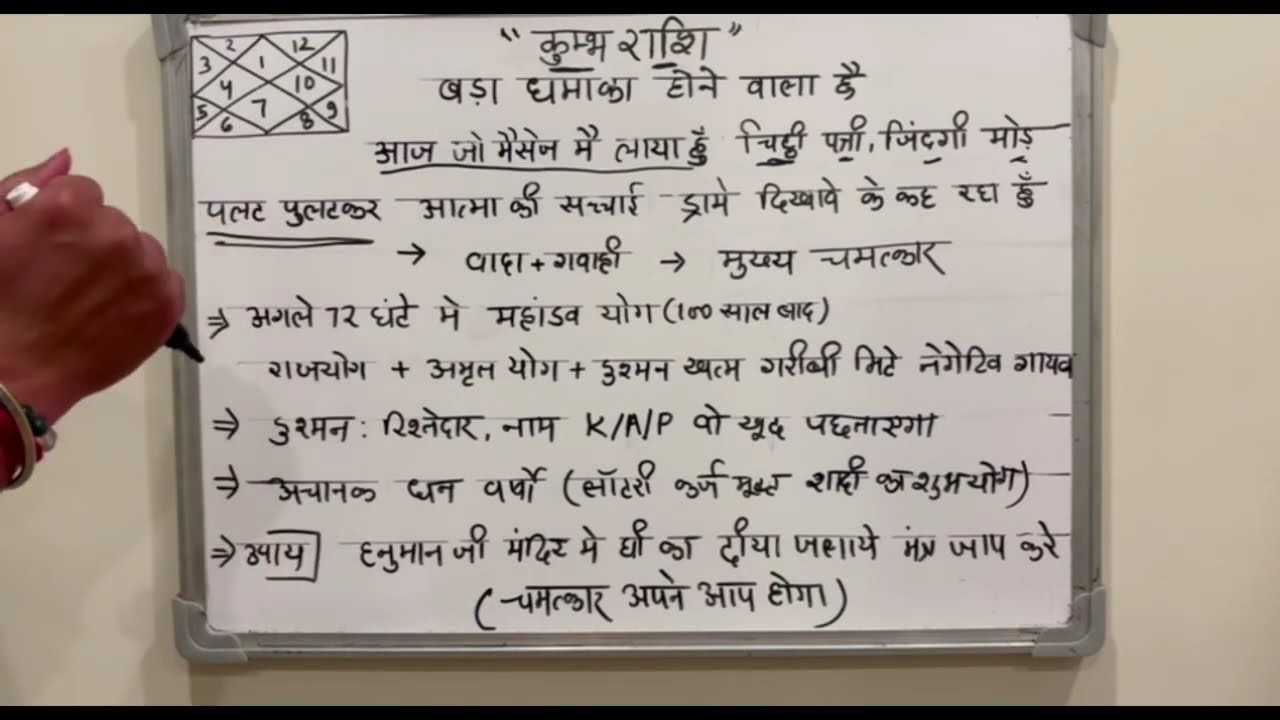 2 12
3 1 11
4 10
5 7 9
6 8
"कुम्भ राशि"
बड़ा धमाका होने वाला है
आज जो मैसेज मै लाया हुँ चिट्ठी पत्री, जिंदगी मोड़
पलट पुलटकर आत्मा की सच्चाई ड्रामे दिखावे के कह रहा हुँ
→ वादा + गवाही → मुख्य चमत्कार
⇒ अगले 72 घंटे मे महांडव योग (100 साल बाद)
राजयोग + अमृत योग + दुश्मन खत्म गरीबी मिटे नेगेटिव गायब
⇒ दुश्मन : रिश्तेदार, नाम K/A/P वो खुद पछताएगा
⇒ अचानक धन वर्षा (लॉटरी कर्ज मुक्त शादी का शुभयोग)
⇒ हनुमान जी मंदिर मे घी का दीया जलाये मंत्र जाप करे
(चमत्कार अपने आप होगा)